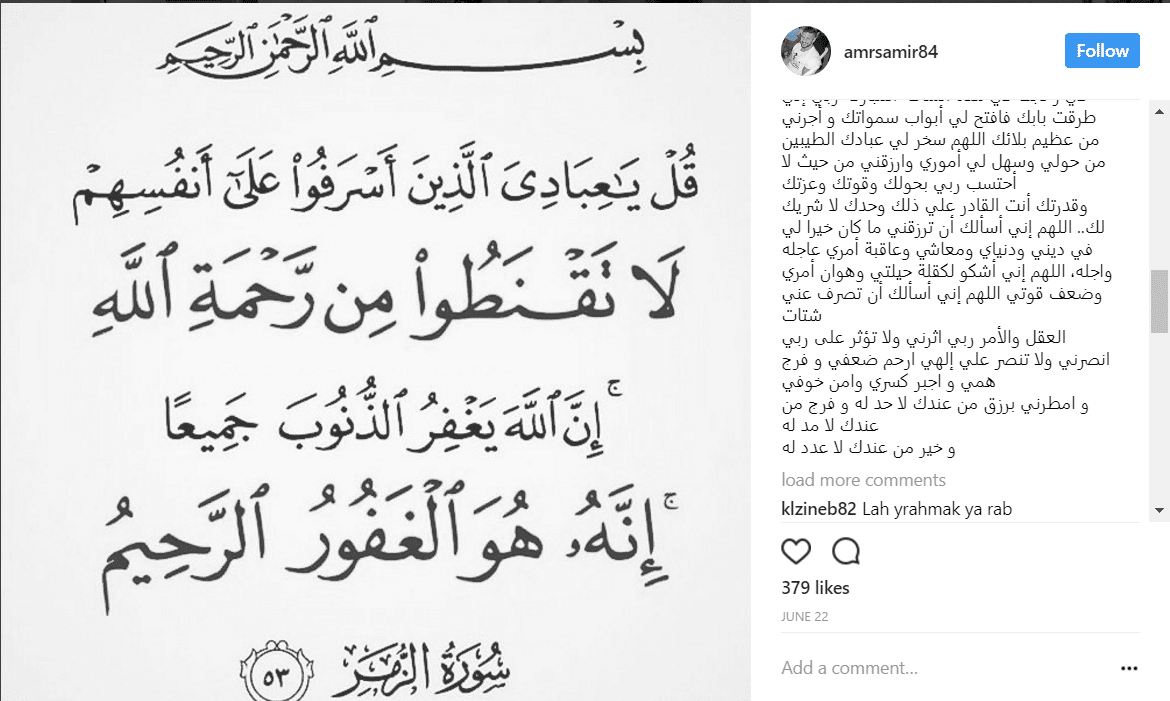 بِسْمِ ٱللَّهِ ٱلرَّحْمَٰنِ ٱلرَّحِيمِ
قُلْ يَٰعِبَادِىَ ٱلَّذِينَ أَسْرَفُوا۟ عَلَىٰٓ أَنفُسِهِمْ
لَا تَقْنَطُوا۟ مِن رَّحْمَةِ ٱللَّهِ
ۚ إِنَّ ٱللَّهَ يَغْفِرُ ٱلذُّنُوبَ جَمِيعًا
ۚ إِنَّهُۥ هُوَ ٱلْغَفُورُ ٱلرَّحِيمُ
سُورَةُ الزُّمَر ٥٣
amrsamir84
Follow
طرقت بابك فافتح لي أبواب سمواتك و أجرني
من عظيم بلائك اللهم سخر لي عبادك الطيبين
من حولي وسهل لي أموري وارزقني من حيث لا
أحتسب ربي بحولك وقوتك وعزتك
وقدرتك أنت القادر علي ذلك وحدك لا شريك
لك.. اللهم إني أسألك أن ترزقني ما كان خيرا لي
في ديني ودنياي ومعاشي وعاقبة أمري عاجله
واجله، اللهم إني أشكو لكقلة حيلتي وهوان أمري
وضعف قوتي اللهم إني أسألك أن تصرف عني
شتات
العقل والأمر ربي اثرني ولا تؤثر على ربي
انصرني ولا تنصر علي إلهي ارحم ضعفي و فرج
همي و اجبر كسري وامن خوفي
و امطرني برزق من عندك لا حد له و فرج من
عندك لا مد له
و خير من عندك لا عدد له
load more comments
klzineb82 Lah yrahmak ya rab
379 likes
JUNE 22
Add a comment...